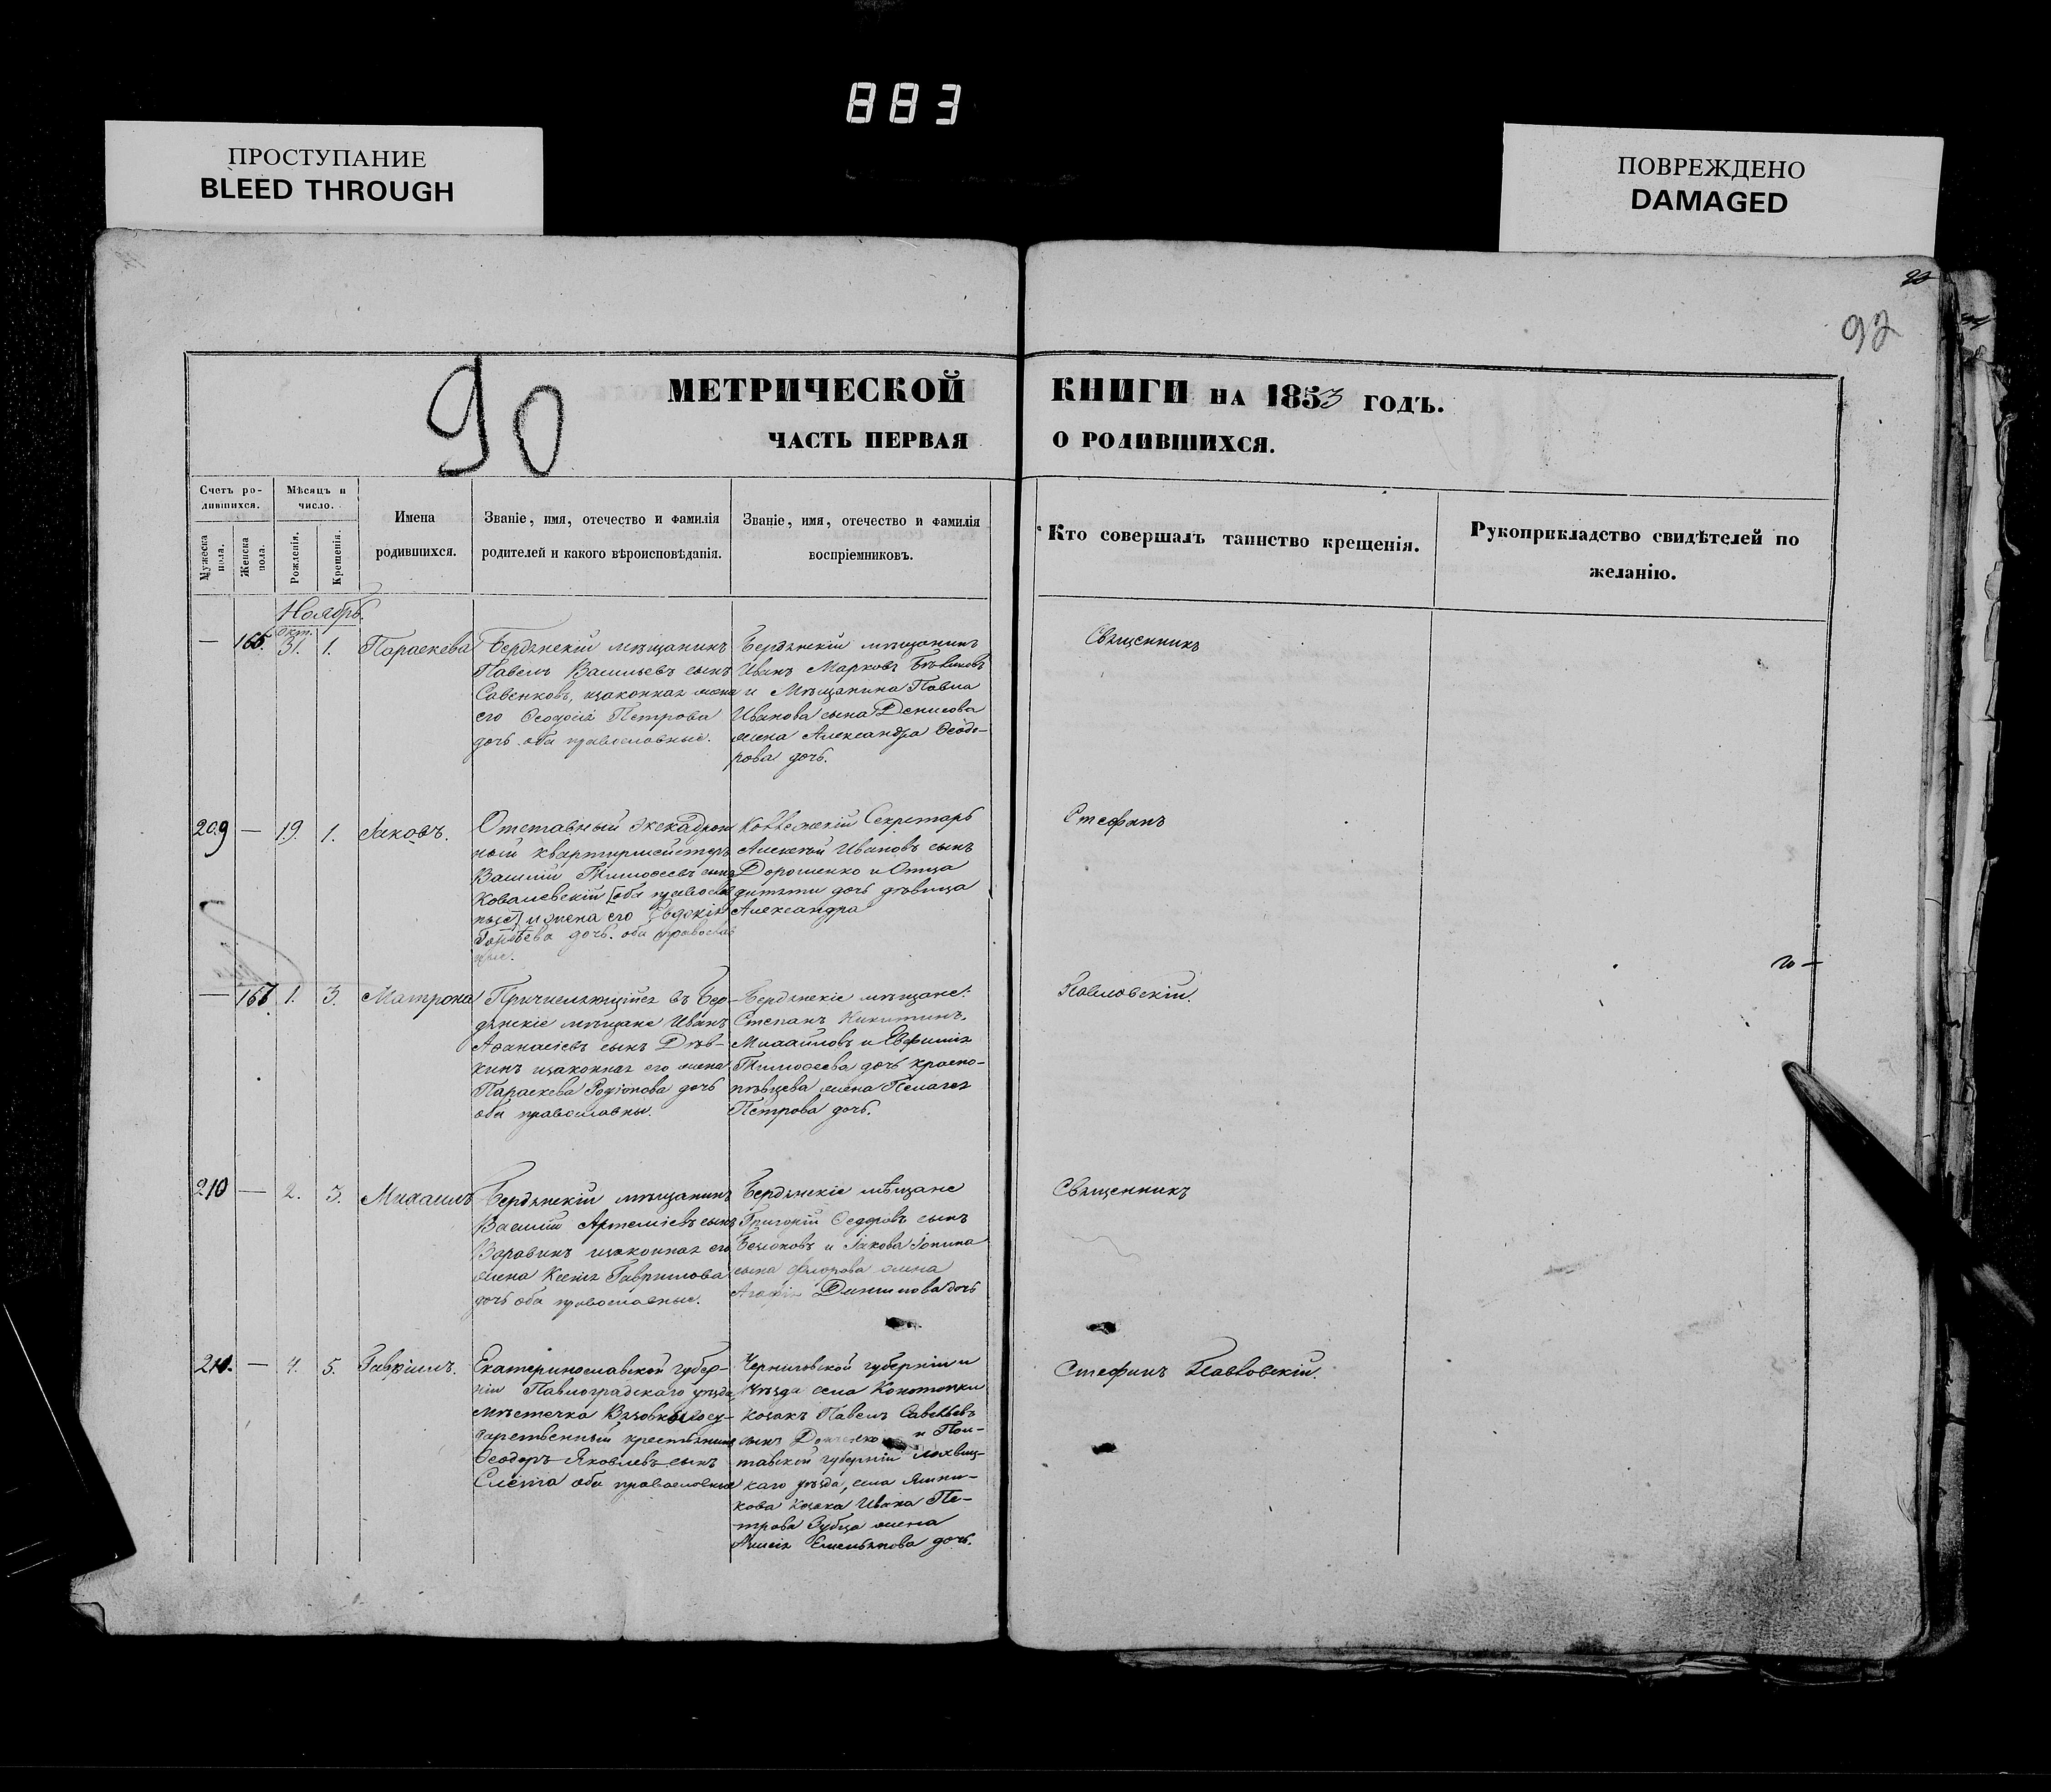 883
ПРОСТУПАНИЕ
BLEED THROUGH
ПОВРЕЖДЕНО
DAMAGED
92
90
МЕТРИЧЕСКОЙ КНИГИ НА 1853 ГОДЪ.
ЧАСТЬ ПЕРВАЯ О РОДИВШИХСЯ.
Счетъ ро-
дившихся.
Мужеска пола.
Женска пола.
Мѣсяцъ и
число.
Рожденія.
Крещенія.
Имена
родившихся.
Званіе, имя, отечество и фамилія
родителей и какого вѣроисповѣданія.
Званіе, имя, отечество и фамилія
воспріемниковъ.
Кто совершалъ таинство крещенія.
Рукоприкладство свидѣтелей по
желанію.
Ноябрь.
— 166. Окт. 31. 1. Параскева
Бердянскій мѣщанинъ
Павелъ Васильевъ сынъ
Савенковъ, изаконная жена
его Ѳеодосія Петрова
дочь оба православные.
Бердянскій мѣщанинъ
Иванъ Марковъ
и Мѣщанина Павла
Иванова сына Денисова
жена Александра Ѳеодо-
рова дочь.
Священникъ
209 — 19. 1. Іаковъ.
Отставный эскадрон
ный квартирмейстеръ
Василій Тимоѳеевъ сынъ
Ковалевскій [оба православ
ные] и жена его Евдокія
дочь. оба православ
ные.
Коллежскій Секретарь
Алексѣй Ивановъ сынъ
Дорошенко и Отца
дитяти дочь дѣвица
Александра
Стефанъ
— 167. 1. 3. Матрона
Причисляющійся въ Бер-
дянскіе мѣщане Иванъ
Аѳанасіевъ сынъ Дѣв-
кинъ изаконная его жена
Параскева Родіонова дочь
оба православны.
Бердянскіе мѣщане:
Степанъ Никитинъ
Михайловъ и Евфимія
Тимоѳеева дочь красно-
пѣвцева жена Пелагея
Петрова дочь.
Павловскій.
210 — 2. 3. Михаилъ
Бердянскій мѣщанинъ
Василій Артеміевъ сынъ
Варавинъ изаконная его
жена Ксенія Гаврилова
дочь оба православные.
Бердянскіе мѣщане
Григорій Ѳедоровъ сынъ
и Іакова
сына Фролова жена
Агафія Данилова дочь
Священникъ
211. — 4. 5. Гавріилъ.
Екатеринославской губер-
ніи Павлоградскаго уѣзда
мѣстечка Вязовка госу-
дарственный крестьянинъ
Ѳеодоръ Яковлевъ сынъ
Слёта оба православные
Черниговской губерніи и
уѣзда села Конотопки
козакъ Павелъ Савельевъ
сынъ и Пол-
тавской губерніи Лохвиц-
каго уѣзда, села Яшни-
кова козака Ивана Пе-
трова Зубца жена
Емельянова дочь.
Стефанъ Павловскій.